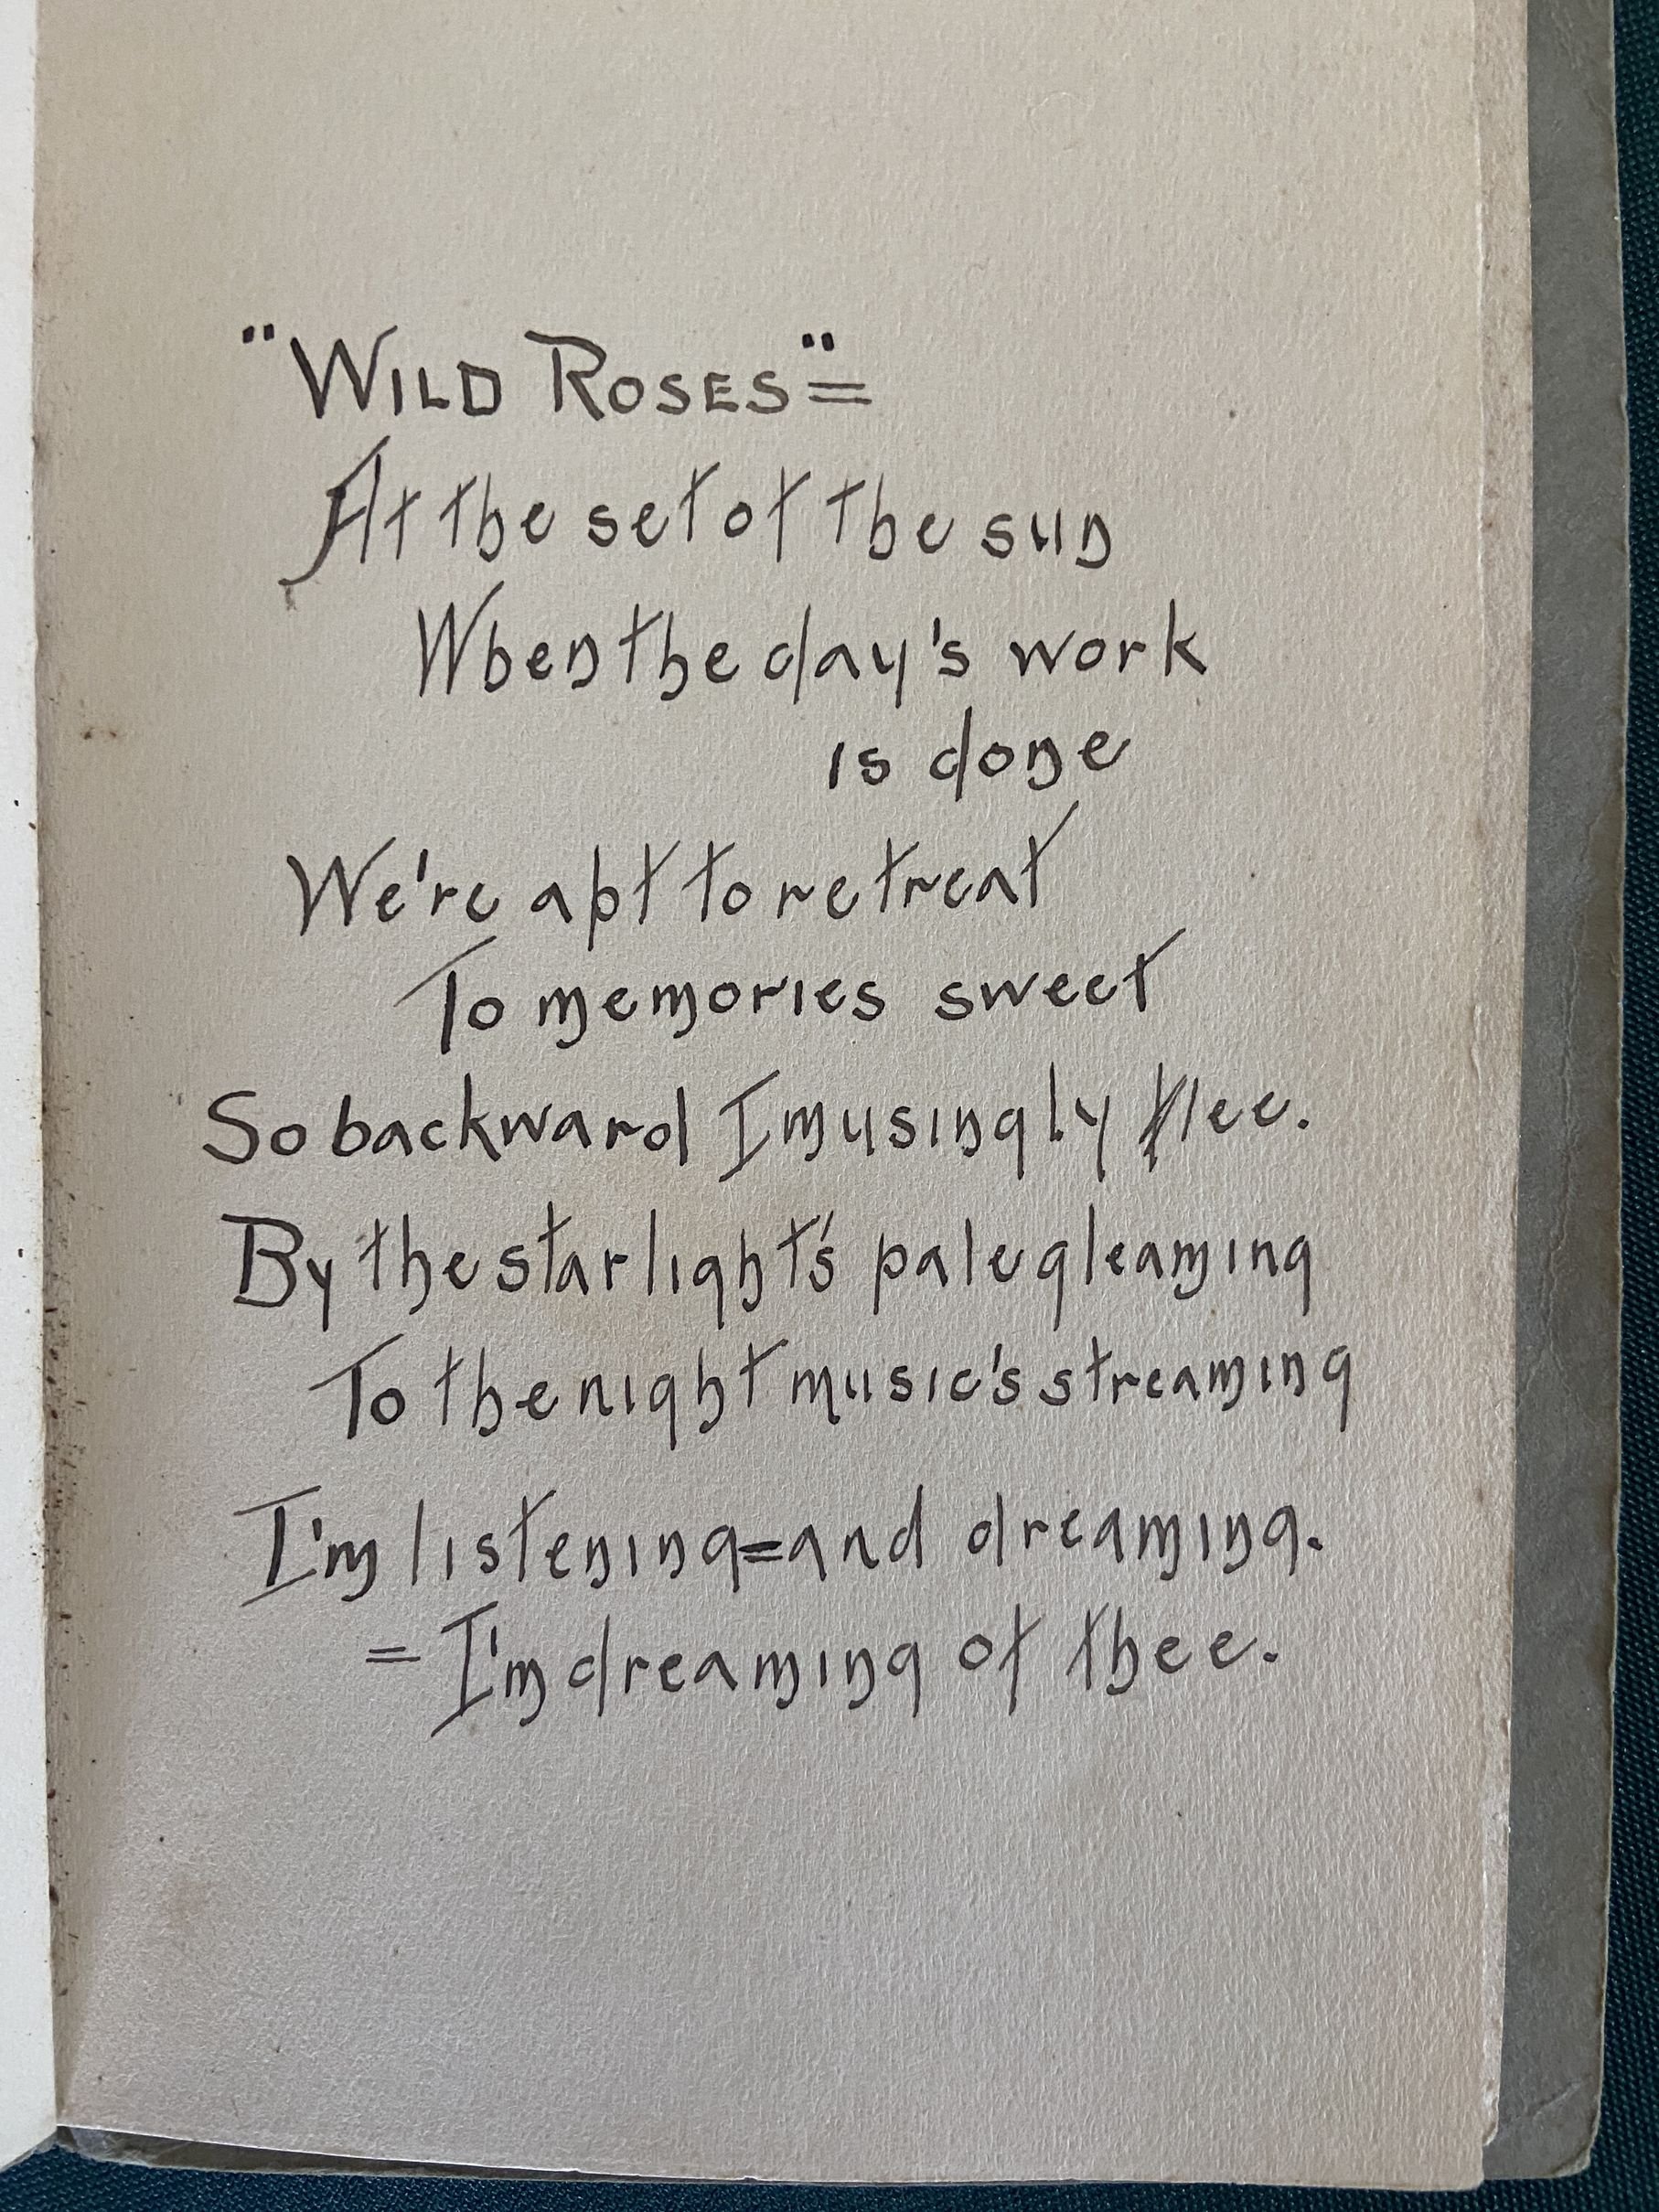 "WILD ROSES"=
At the set of the sun
When the day's work
is done
We're apt to retreat
To memories sweet
So backward I musingly flee.
By the starlight's pale gleaming
To the night music's streaming
I'm listening=and dreaming.
= I'm dreaming of thee.